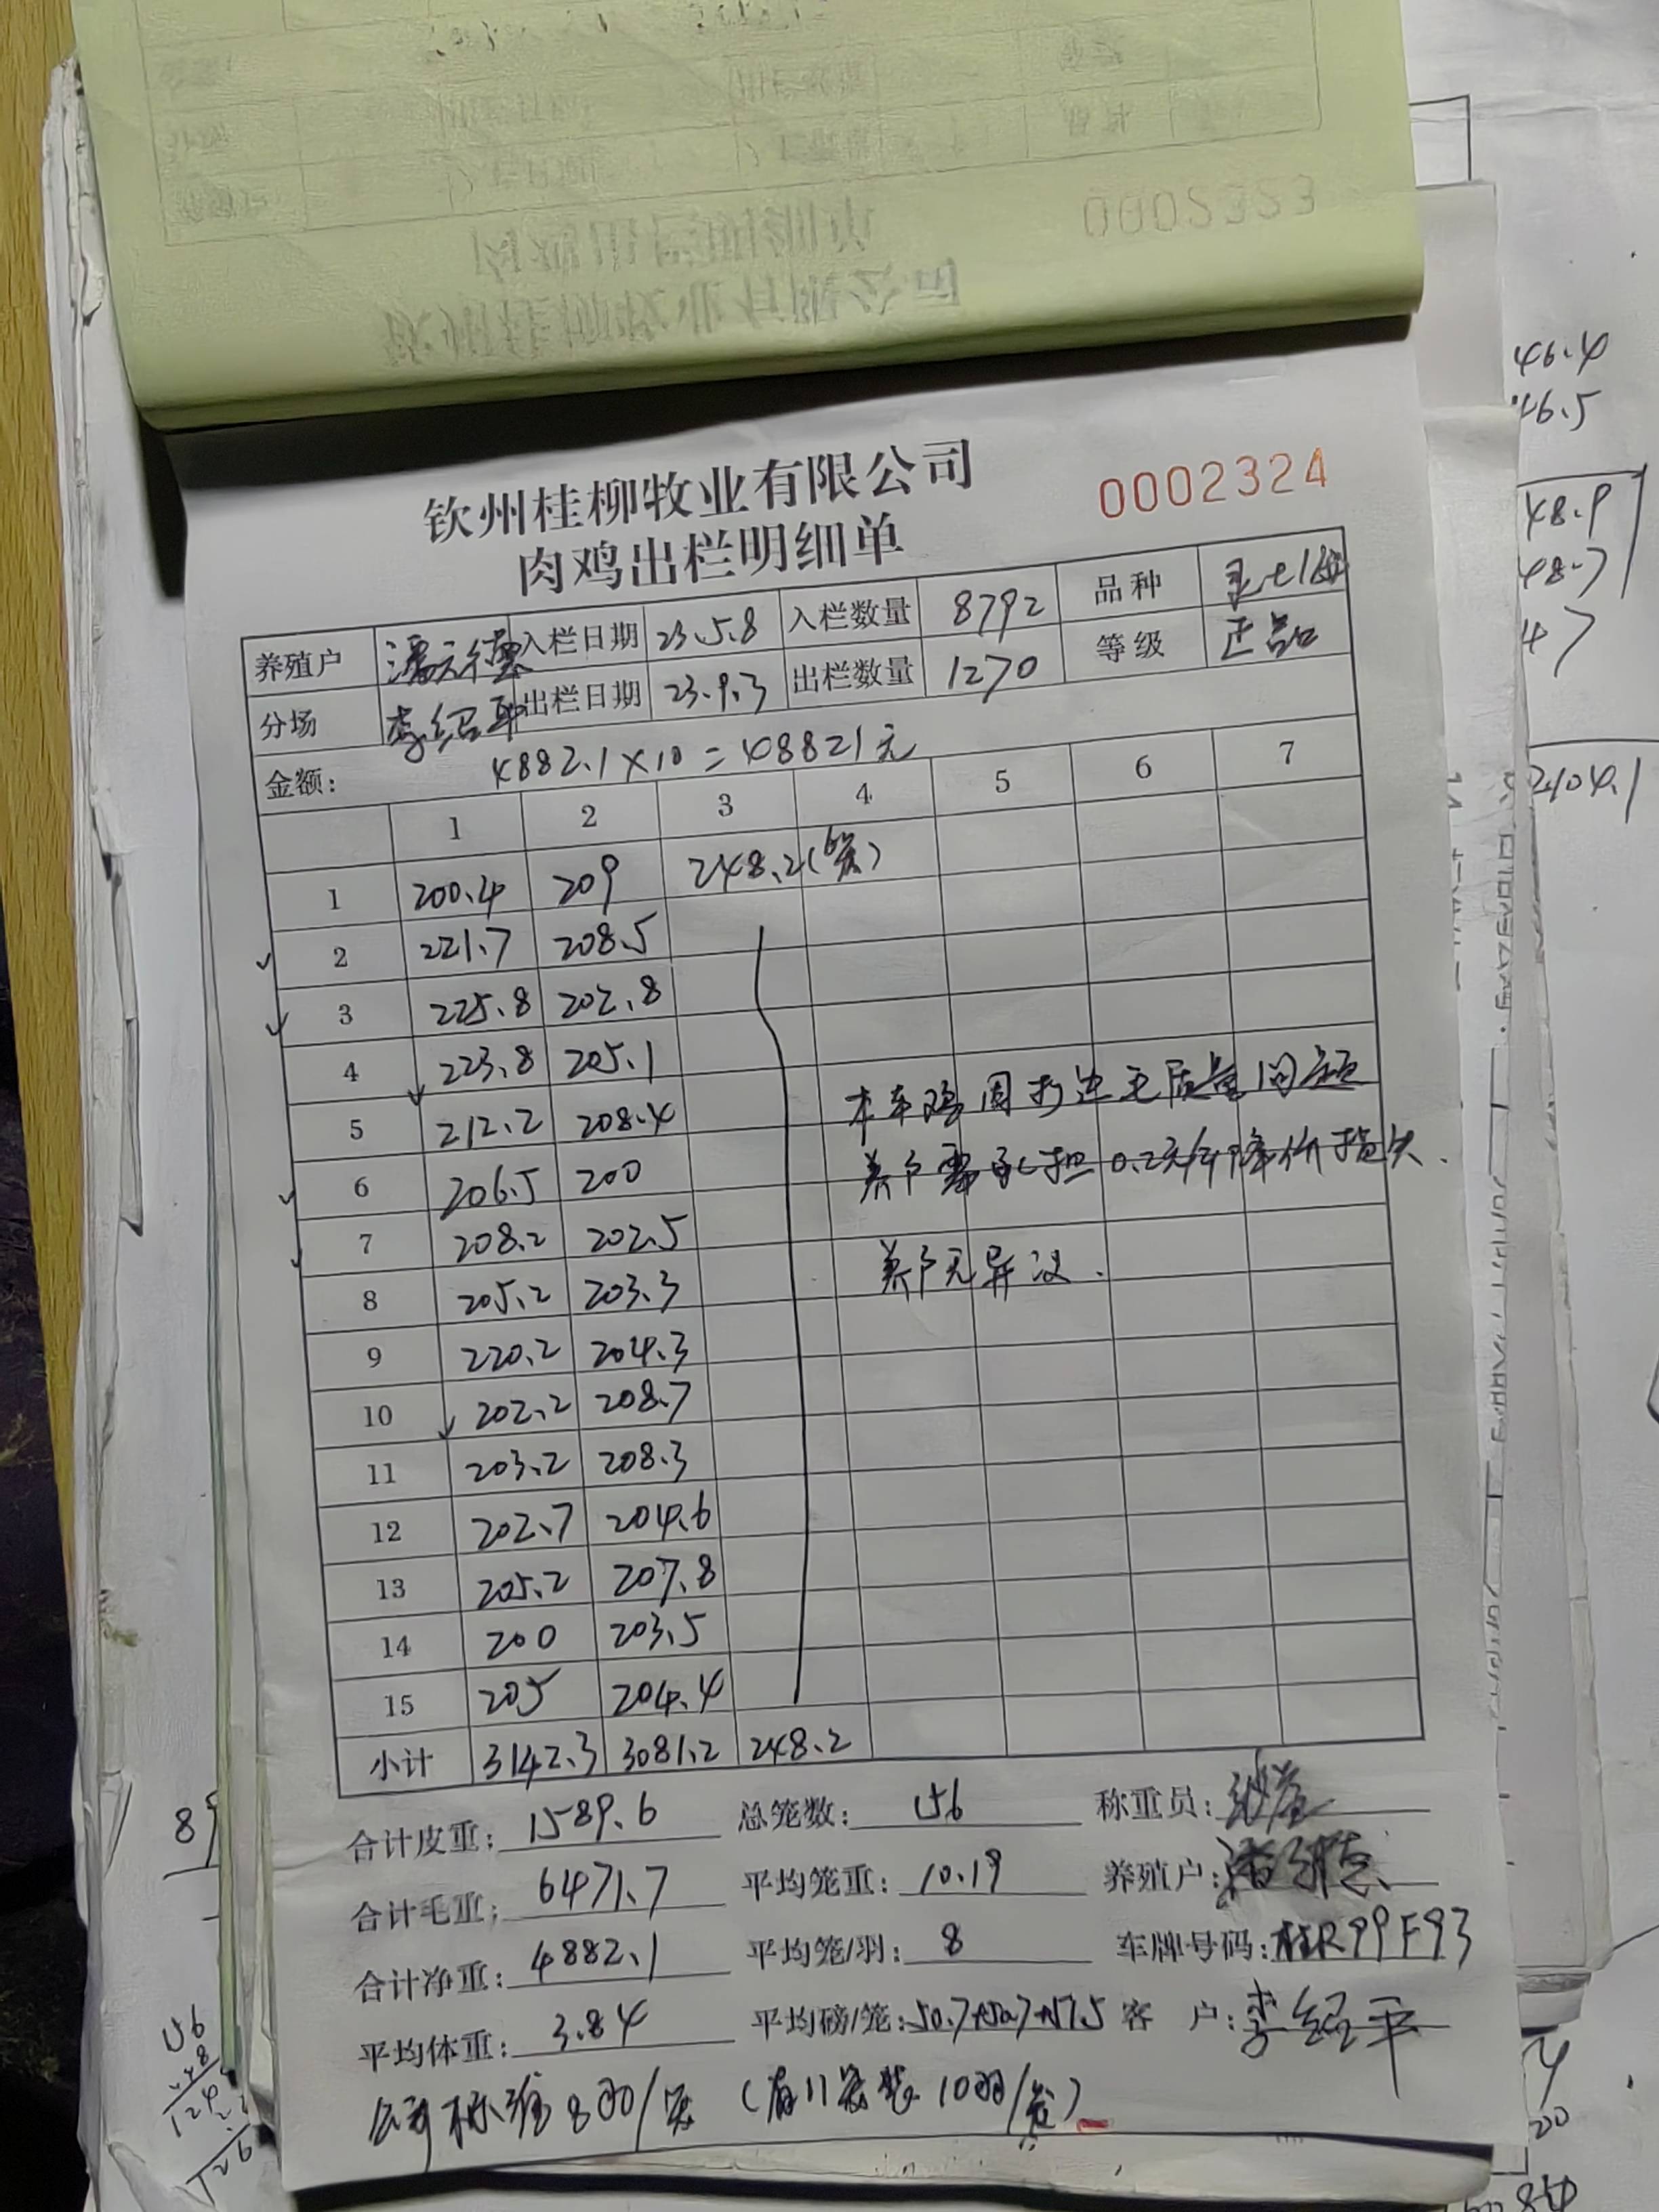 0002323
钦州桂柳牧业有限公司
0002324
肉鸡出栏明细单
养殖户 入栏日期 23.5.8 入栏数量 8792 品种
分场 李绍平 出栏日期 23.9.3 出栏数量 1270 等级 正品
金额: 4882.1×10=48821元
1 2 3 4 5 6 7
1 200.4 209 248.2(6笼)
2 221.7 208.5
3 225.8 202.8
4 223.8 205.1
5 212.2 208.4
6 206.5 200
7 208.2 202.5
8 205.2 203.3
9 220.2 204.3
10 202.2 208.7
11 203.2 208.3
12 202.7 204.6
13 205.2 207.8
14 200 203.5
15 205 204.4
本车鸡因 毛质量问题
养户需承担0.2元/斤降价损失.
养户无异议.
小计 3142.3 3081.2 248.2
合计皮重: 1589.6 总笼数: 156 称重员:
合计毛重: 6471.7 平均笼重: 10.19 养殖户:
合计净重: 4882.1 平均笼/羽: 8 车牌号码: 桂R99F93
平均体重: 3.84 平均磅/笼: 50.7+50.7+57.5 客 户: 李绍平
标准8羽/笼 (有11笼装10羽/笼)
46.4
46.5
48.9
48.7
47
2104.1